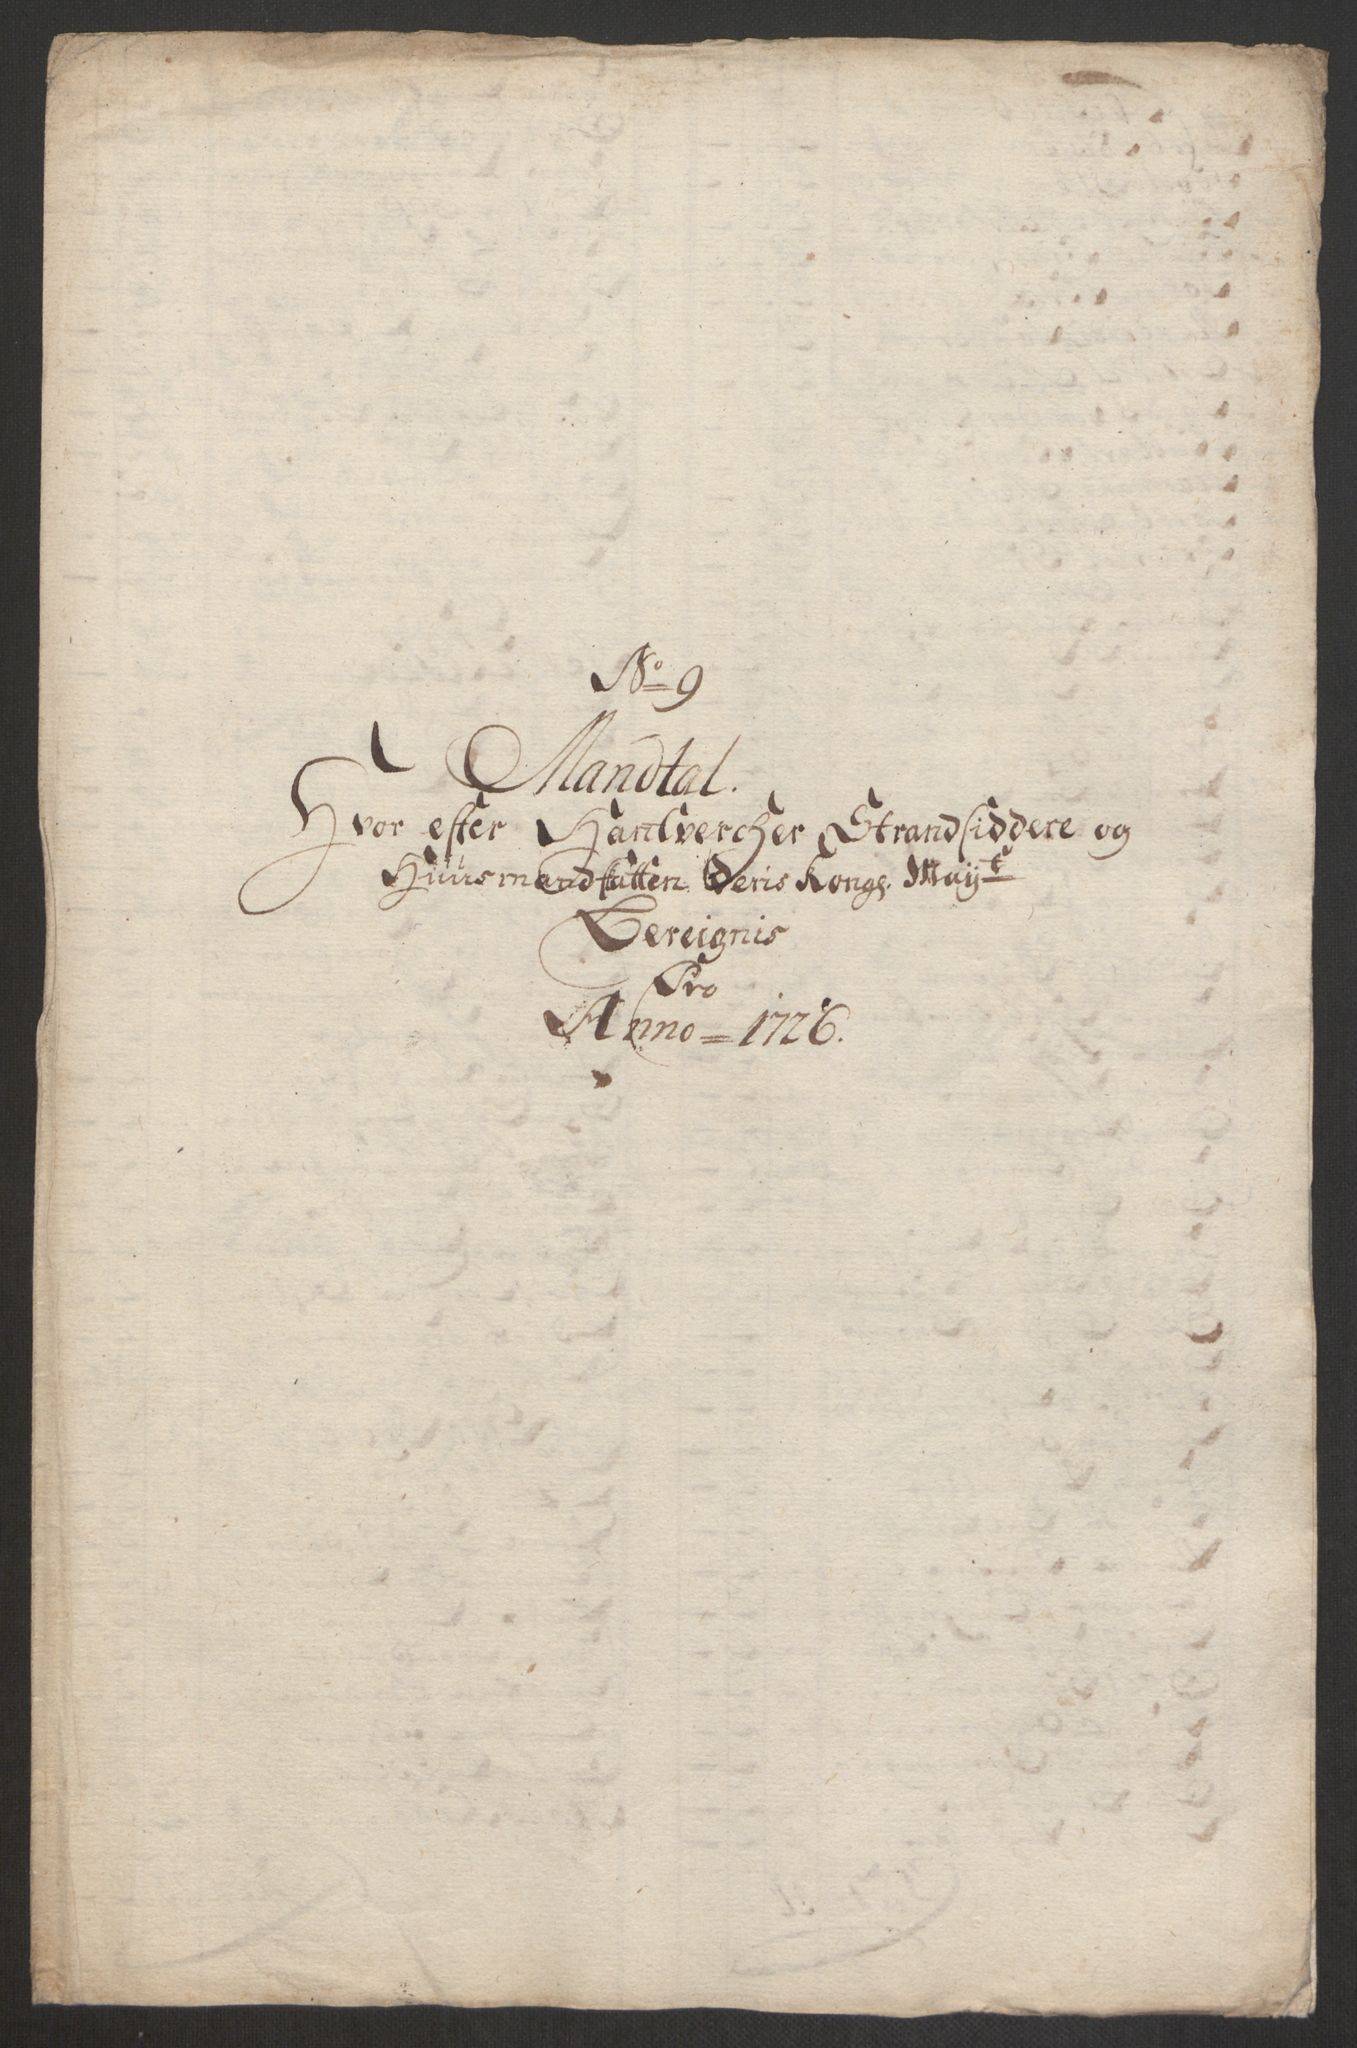 No 9
Mandtal.
Hvor effter Handtvercher Strandsiddere og
Huusmandskatten deris Kongl. Mayt
Bereignis
Pro
Anno = 1726.